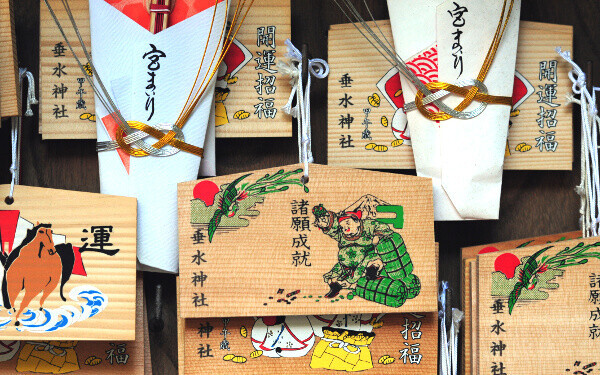 宮まいり
開運招福
垂水神社
宮まいり
開運招福
垂水神社
運
諸願成就
垂水神社
招福
神社
垂水神社
招福